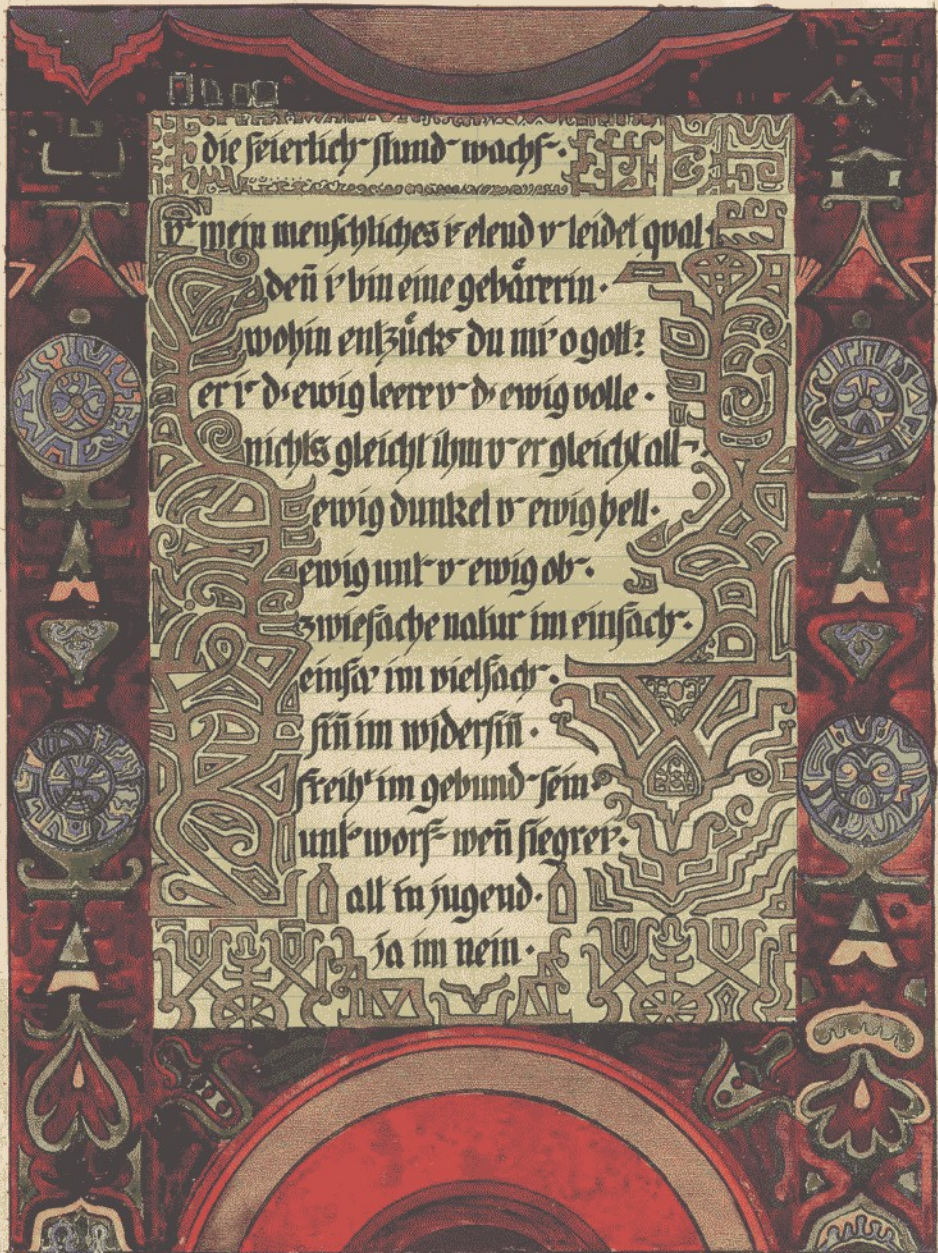 die feierlich stund wachs·
v mein menschliches i elend v leidet qual·
deñ i bin eine gebårerin·
wohin entzůcks du mi o gott?
er i d· ewig leere v d· ewig volle·
nichts gleicht ihm v er gleicht all·
ewig dunkel v ewig hell·
ewig unt v ewig ob·
zwiefache natur im einfach·
einfa im vielfach·
siñ im widersiñ·
freih^t im gebund sein·
unt worf weñ siegrei·
alt in jugend·
ja im nein·